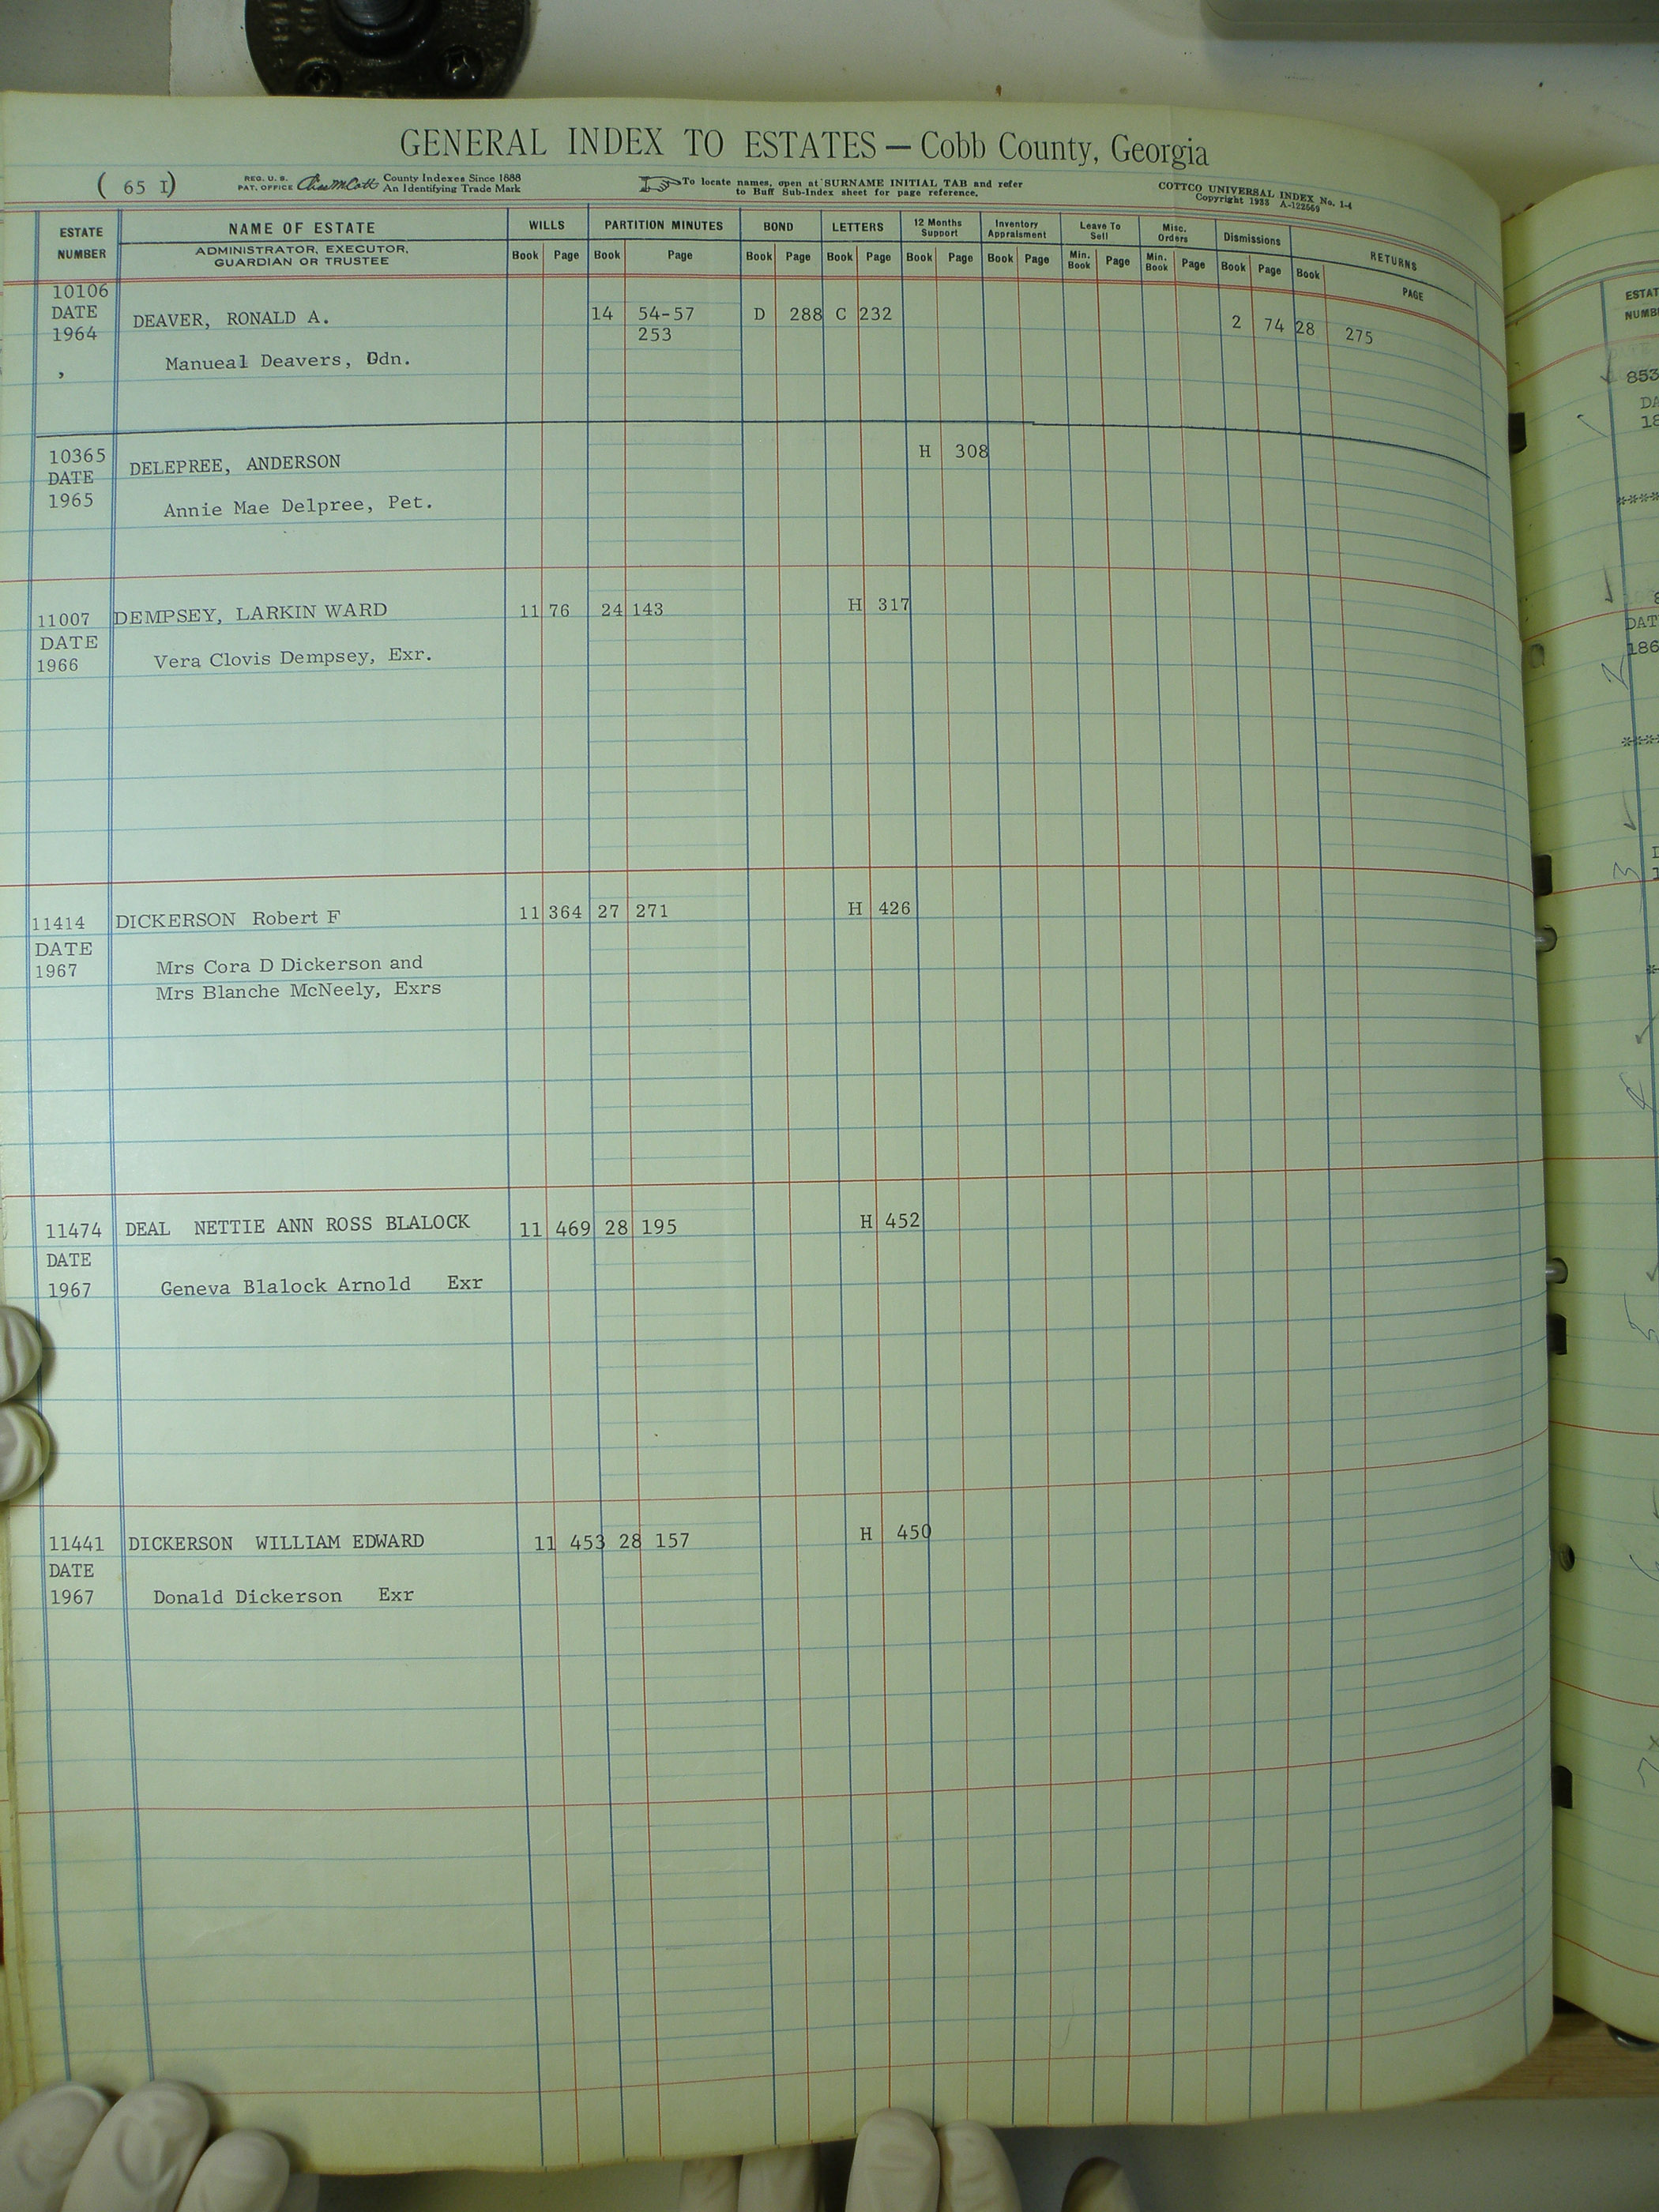 GENERAL INDEX TO ESTATES — Cobb County, Georgia
( 65 I)
REG. U. S. PAT. OFFICE County Indexes Since 1888 An Identifying Trade Mark
To locate names, open at SURNAME INITIAL TAB and refer to Buff Sub-Index sheet for page reference.
COTTCO UNIVERSAL INDEX No. 1-4
Copyright 1933 A-122569
ESTATE NUMBER NAME OF ESTATE WILLS PARTITION MINUTES BOND LETTERS 12 Months Support Inventory Appraisment Leave To Sell Misc. Orders Dismissions RETURNS
ADMINISTRATOR, EXECUTOR, GUARDIAN OR TRUSTEE Book Page Book Page Book Page Book Page Book Page Book Page Min. Book Page Min. Book Page Book Page Book PAGE
10106
DATE DEAVER, RONALD A. 14 54-57 D 288 C 232 2 74 28 275
1964 253
Manueal Deavers, Gdn.
10365 DELEPREE, ANDERSON H 308
DATE
1965 Annie Mae Delpree, Pet.
11007 DEMPSEY, LARKIN WARD 11 76 24 143 H 317
DATE
1966 Vera Clovis Dempsey, Exr.
11414 DICKERSON Robert F 11 364 27 271 H 426
DATE
1967 Mrs Cora D Dickerson and
Mrs Blanche McNeely, Exrs
11474 DEAL NETTIE ANN ROSS BLALOCK 11 469 28 195 H 452
DATE
1967 Geneva Blalock Arnold Exr
11441 DICKERSON WILLIAM EDWARD 11 453 28 157 H 450
DATE
1967 Donald Dickerson Exr